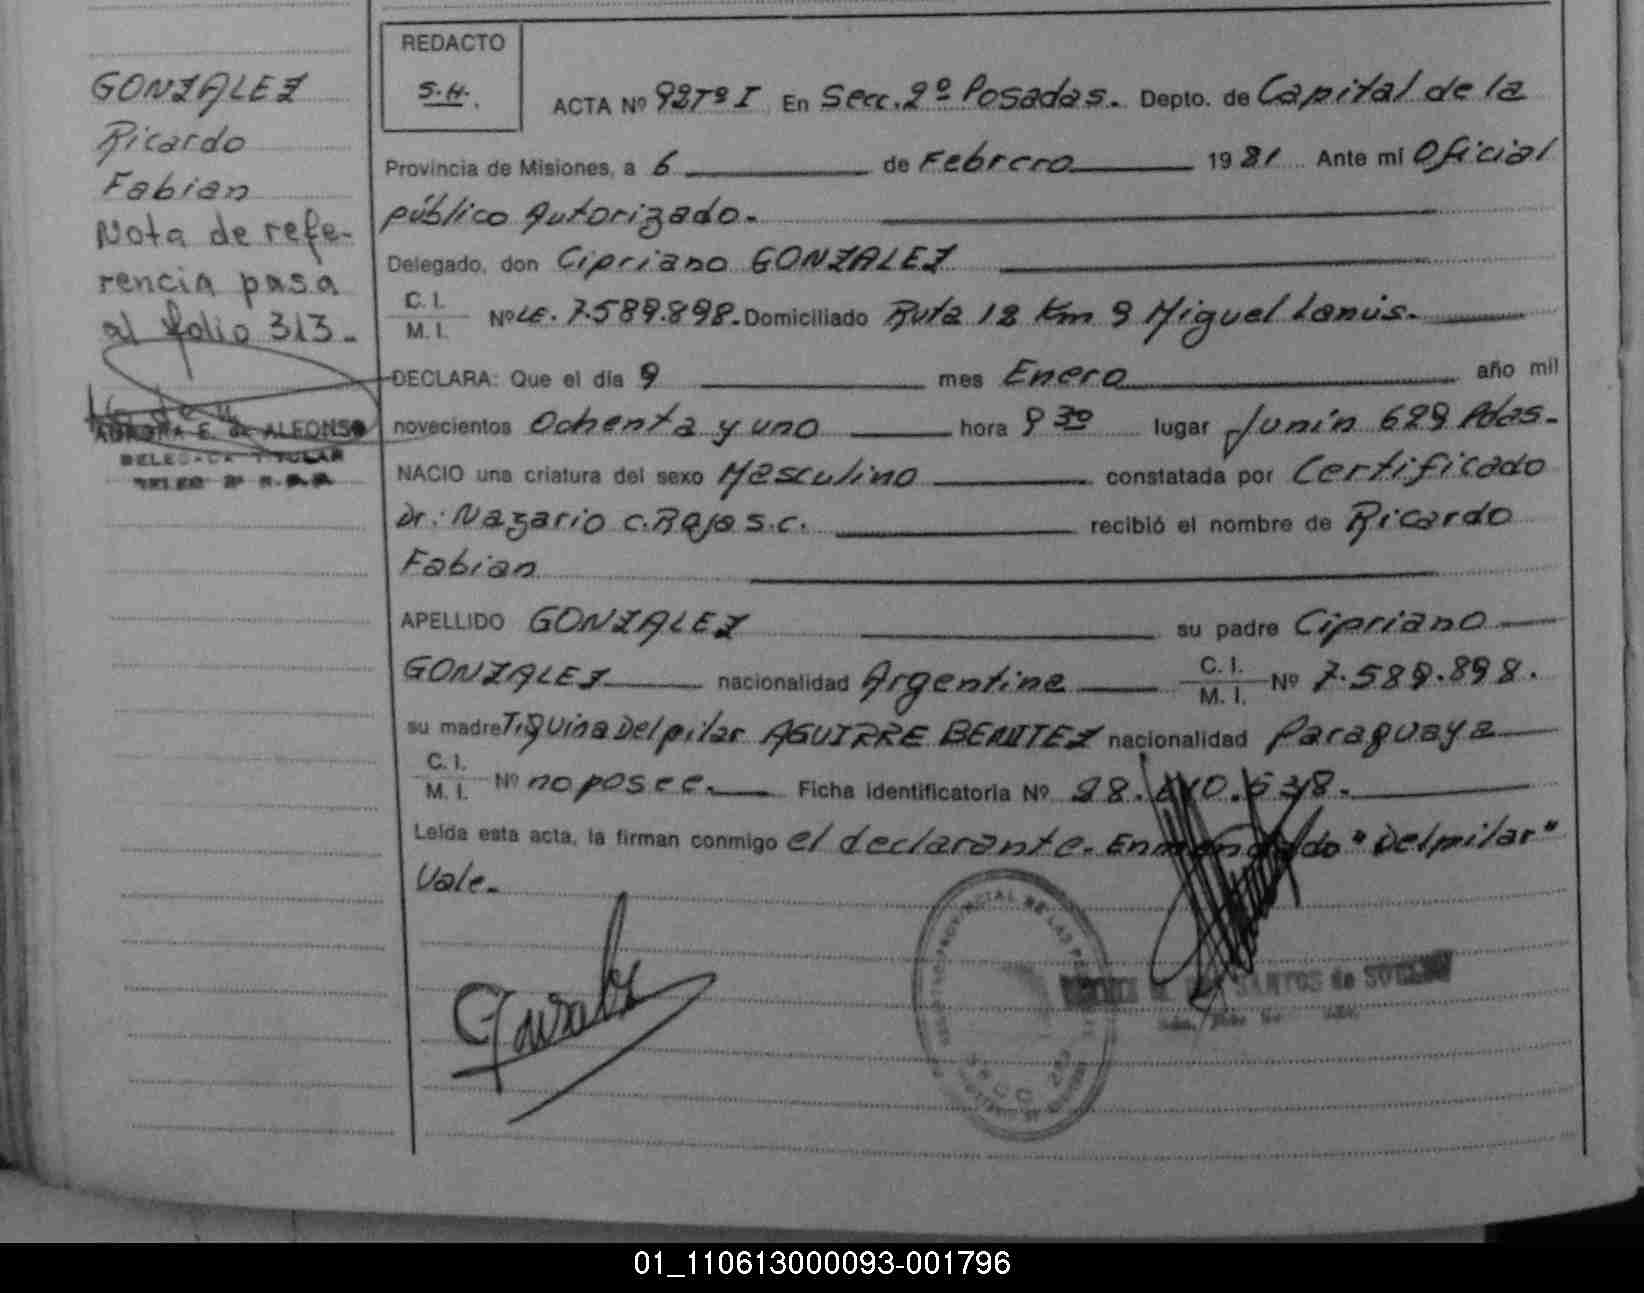 GONZALEZ
Ricardo
Fabian
Nota de refe-
rencia pasa
al folio 313.-
DELEGADA TITULAR
REDACTO
S.H.
ACTA Nº 92Tº I En Secc. 2º Posadas. Depto. de Capital de la
Provincia de Misiones, a 6 de Febrero 1981 Ante mi Oficial
público Autorizado.
Delegado, don Cipriano GONZALEZ
C. I.
M. I. Nº LE. 7.589.898. Domiciliado Ruta 12 Km 9 Miguel Lanús.
DECLARA: Que el día 9 mes Enero año mil
novecientos Ochenta y uno hora 9 30 lugar Junin 629 Pdas.
NACIO una criatura del sexo Masculino constatada por Certificado
Dr: Nazario C. Rojas S.C. recibió el nombre de Ricardo
Fabian
APELLIDO GONZALEZ su padre Cipriano
GONZALEZ nacionalidad Argentina C. I.
M. I. Nº 7.589.898.
su madre Tiguina Delpilar AGUIRRE BENITEZ nacionalidad Paraguaya
C. I.
M. I. Nº no posee. Ficha identificatoria Nº
Leída esta acta, la firman conmigo el declarante. Enmendado "Delpilar"
Vale.
SANTOS de
01_110613000093-001796